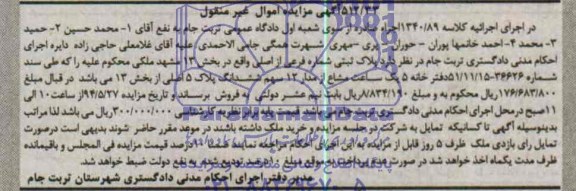 ۵۱۲/۲۳ آگهی مزایده اموال غیر منقول
در اجرای اجرائیه کلاسه ۱۳۴۰/۸۹ اجراء صادره از سوی شعبه اول دادگاه عمومی تربت جام به نفع آقای ۱- محمد حسین ۲- حمید
۳- محمد ۴- احمد خانمها پوران - حوران - پری - مهری شهرت همگی جامی الاحمدی علیه آقای غلامعلی حاجی زاده دایره اجرای
احکام مدنی دادگستری تربت جام در نظر دارد پلاک ثبتی شماره فرعی از اصلی واقع در بخش ۱۳ مشهد ملکی محکوم علیه را که طی سند
شماره ۳۶۶۲۶-۵۱/۱۱/۱۵ دفتر خانه ۵ یک ساعت مشاع از مدار ۱۲ سهم ششدانگ پلاک ۵ اصلی از بخش ۱۳ می باشد در قبال مبلغ
۱۷۶/۶۸۳/۸۰۰ ریال محکوم به و مبلغ ۸/۸۳۴/۱۹۰ ریال بابت نیم عشر دولتی به فروش برساند و تاریخ مزایده ۹۴/۵/۲۷ از ساعت ۱۰ الی
۱۱ صبح در محل اجرای احکام مدنی دادگستری تربت جام می باشد قیمت پایه برابر نظریه کارشناسی ۳۰۰/۰۰۰/۰۰۰ ریال می باشد لذا مراتب
بدینوسیله آگهی تا کسانیکه تمایل به شرکت در جلسه مزایده و خرید ملک داشته باشند در موعد مقرر حاضر شوند بدیهی است درصورت
تمایل رای بازدی ملک ظرف ۵ روز قبل از مزایده به این اجرای احکام مراجعه نمایند ضمنا ۱۰ درصد قیمت مزایده فی المجلس و باقیمانده
ظرف مدت یکماه اخذ خواهد شد در صورت عدم پرداخت به موقع مبلغ ۱۰ درصد تودیع شده به نفع دولت ضبط خواهد شد.
مدیر دفتر اجرای احکام مدنی دادگستری شهرستان تربت جام